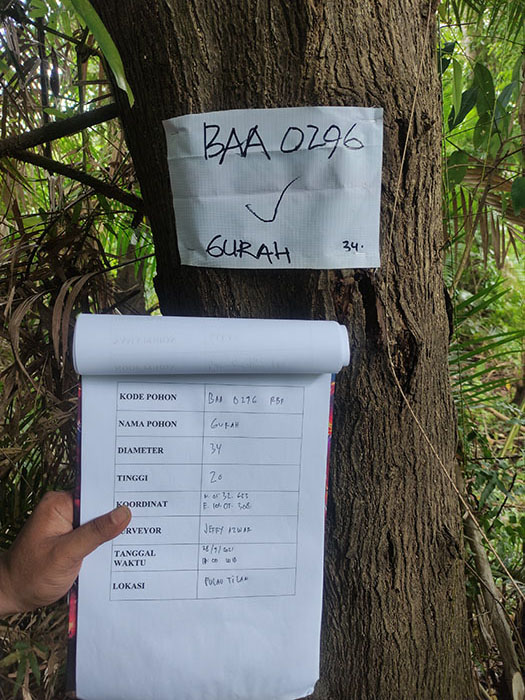 BAA 0296
GURAH 34.
KODE POHON BAA 0296 RBP
NAMA POHON GURAH
DIAMETER 34
TINGGI 20
KOORDINAT
SURVEYOR JEFFY AZWAR
TANGGAL
WAKTU WIB
LOKASI PULAU TILAN